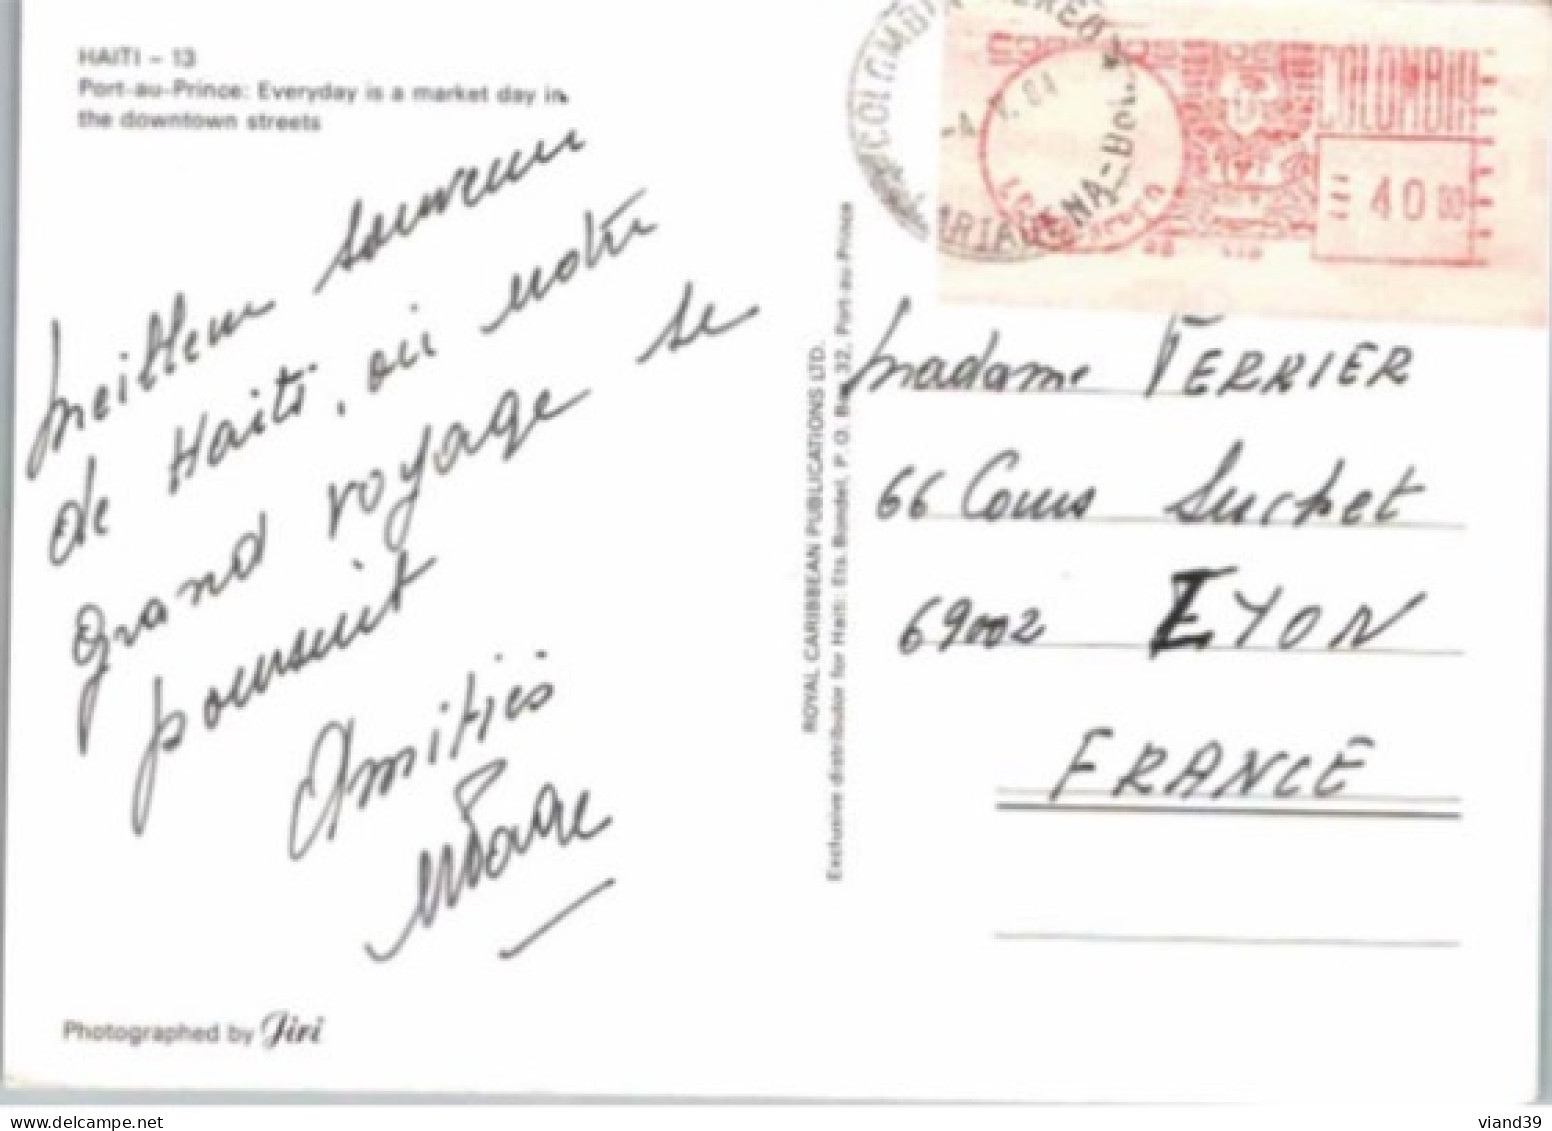 HAITI – 13
Port-au-Prince: Everyday is a market day in
the downtown streets
Meilleur souvenir
de Haïti, où notre
grand voyage se
poursuit
Amitiés
Photographed by Jiri
ROYAL CARIBBEAN PUBLICATIONS LTD.
Exclusive distributor for Haiti: Ets. Bondel, P. O. Box 32, Port-au-Prince
COLOMBIA
COLOMBIA
40 00
Madame VERRIER
66 Cours Suchet
69002 LYON
FRANCE
viand39